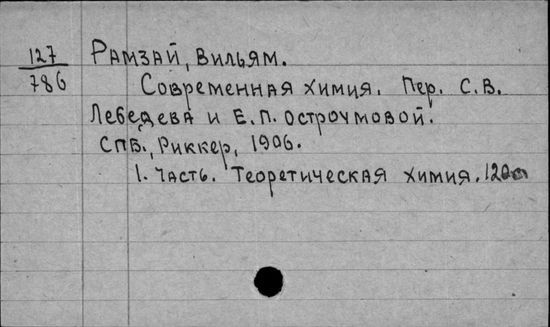 127 Рамзай, Вильям.
786 Современная химия. Пер. С.В.
Лебедева и Е.П. Остроумовой.
СПБ., Риккер, 1906.
1. Часть. Теоретическая химия.